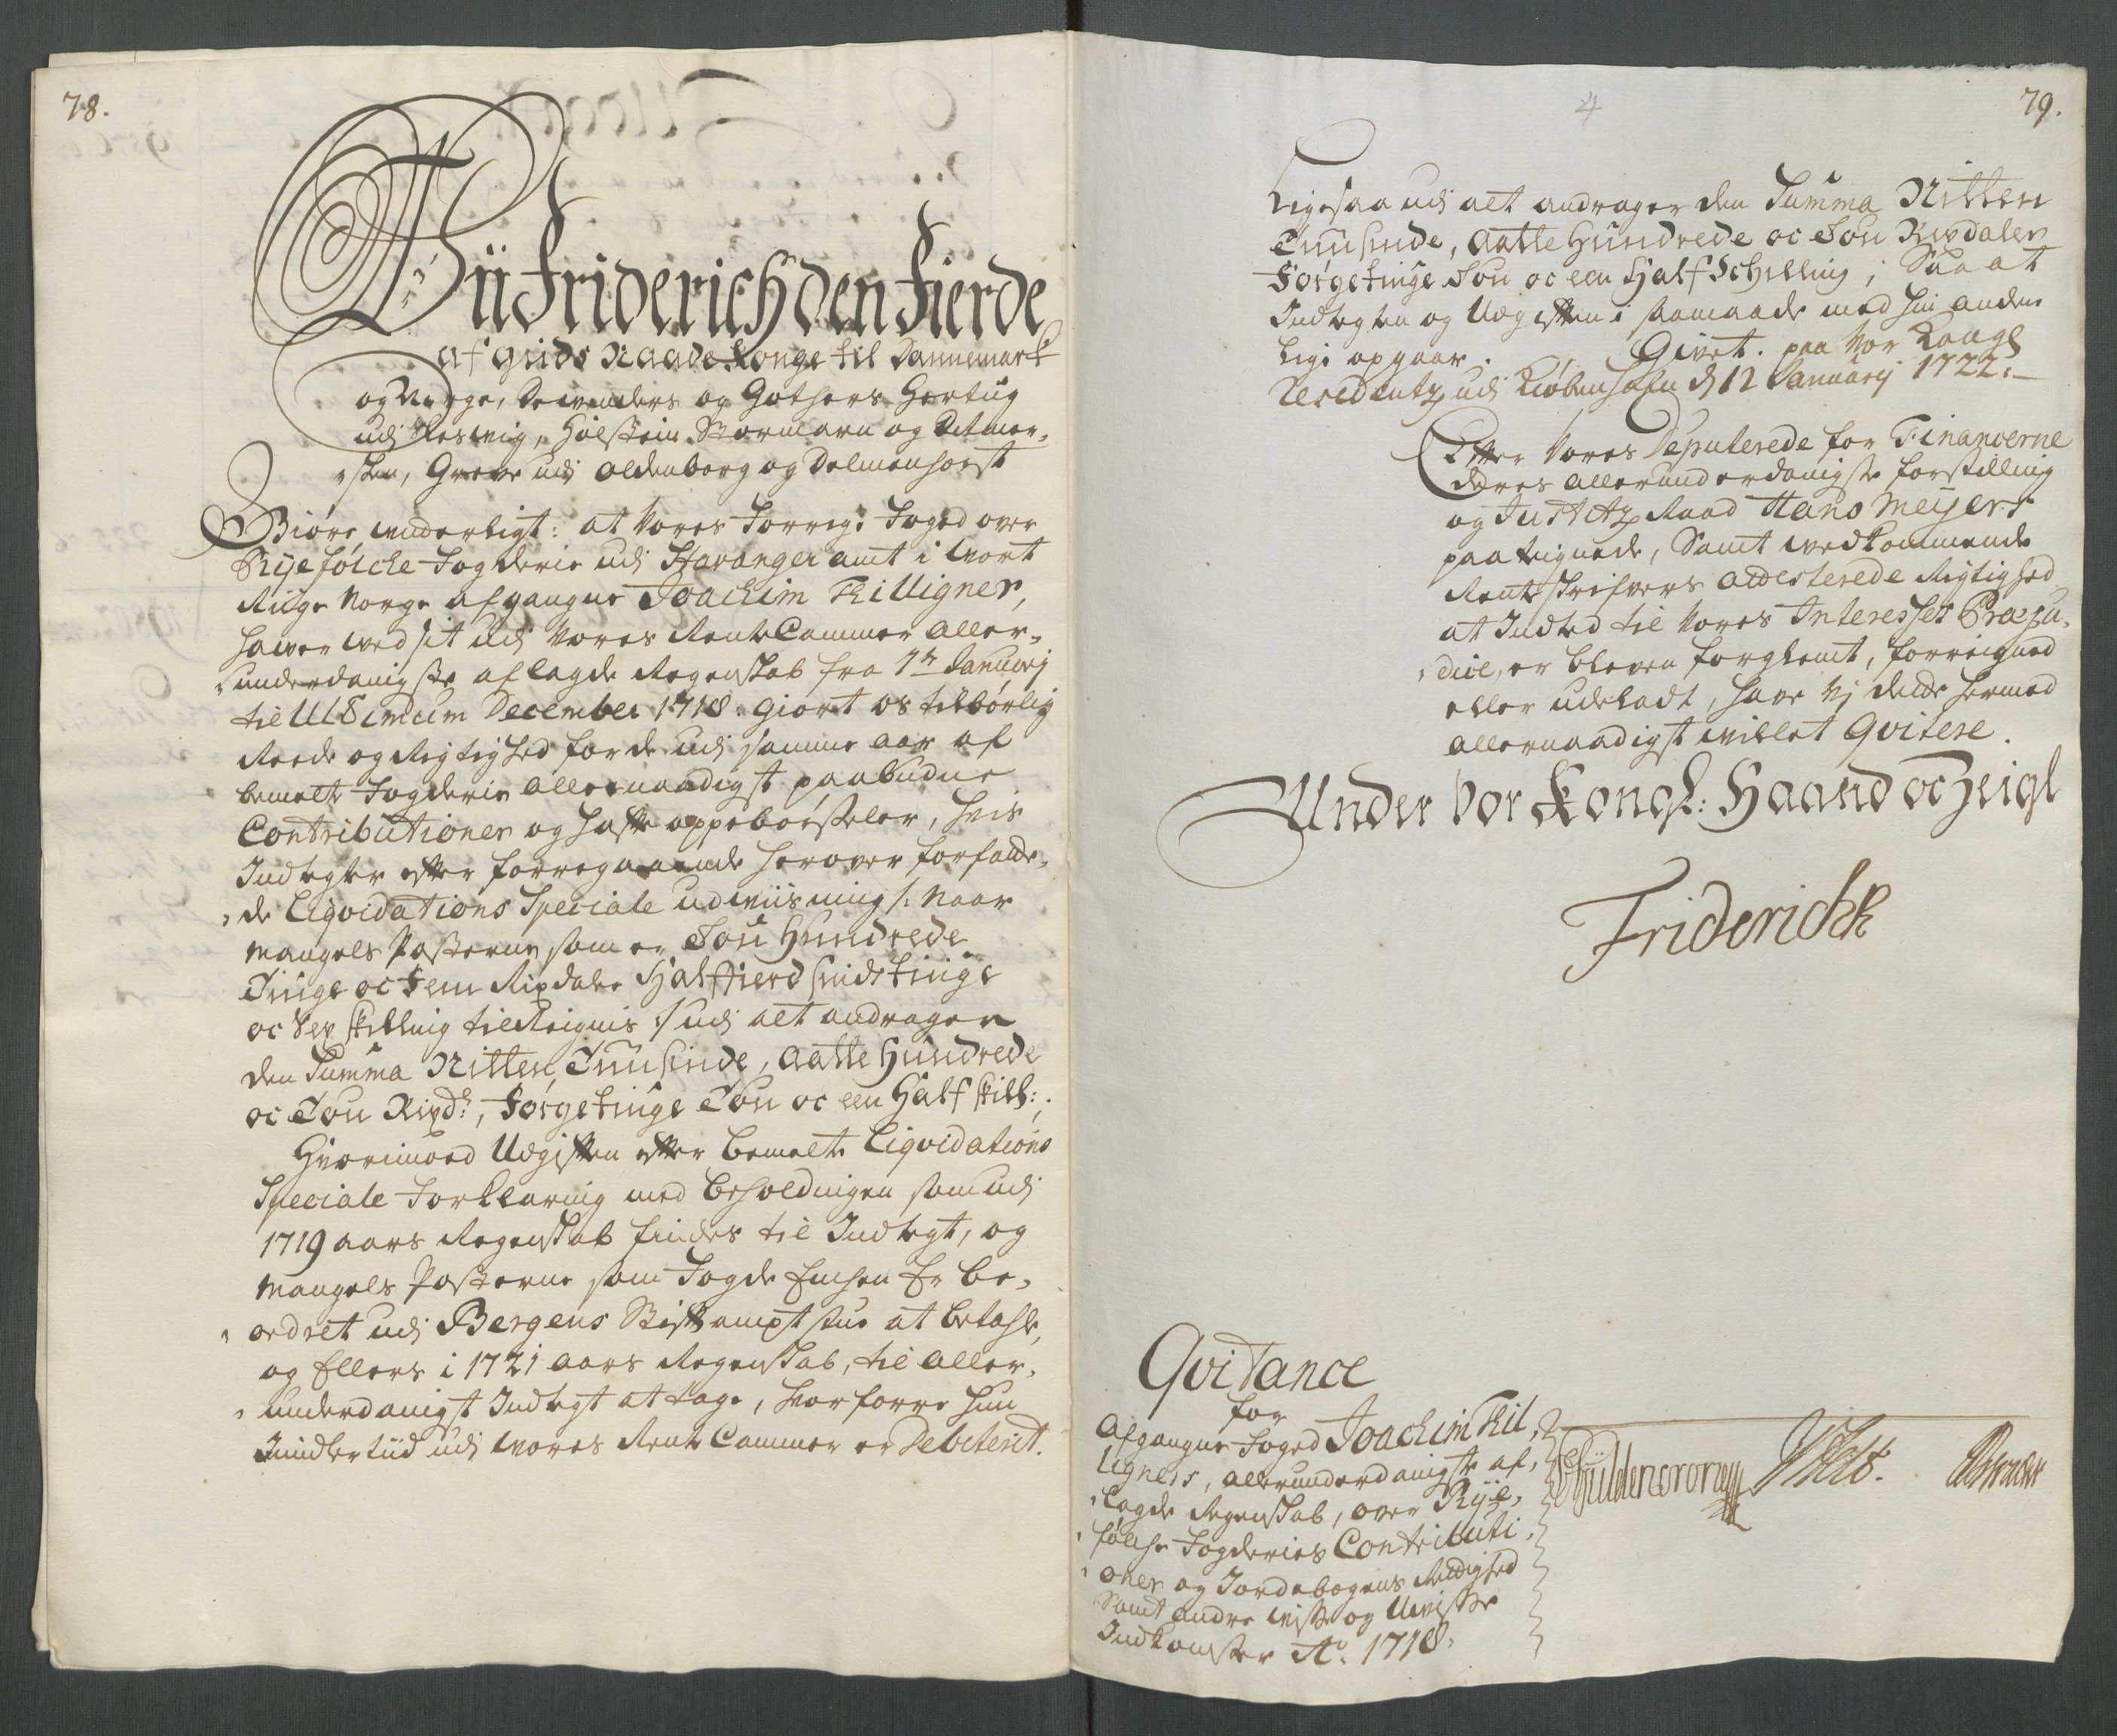 78.
Vii Friderich den Fierde
af Guds Naade Konge til Dannemark
og Norge, de Wenders og Gothers Hertug
udi Slesvig, Holstein Stormarn og Ditmer-
sken, Greve udi Oldenborg og Delmenhorst
Giøre witterligt: at Vores Forrige Foged over
Ryefølche Fogderie udi Stavanger amt i wort
Riige Norge afgangne Joachim Filligner,
hawer wed sit udi Vores RenteCammer aller-
underdanigste aflagde Regenskab fra 1te January
til Ultimum December 1718. giort os tilbørlig
Reede og Rigtighed for de udi samme aar af
bemelte Fogderie allernaadigst paabudne
Contributioner og heste oppebørseler, hvis
Indtegter efter forregaaende herover forfatte-
de Liqvidations Speciale udwiisning /: Naar
Mangels Posterne som er Tou Hundrede
Tiuge oc Fem Rixdaler Halffierdsindstiuge
oc Sex skilling tilleignis :/ udi alt andrager
den Summa Nitten Tuusinde, Aatte Hundrede
oc Tou Rixdr, Førgetiuge Tou oc een Half skill:;
Hvorimoed Udgiften efter bemelte Liqvidations
Speciale Forklaring med beholdningen som udi
1719 aars Regenskab findes til Indtegt, og
Mangels Posterne som Fogde Enchen Er be-
ordret udi Bergens Stiftamptstue at betahle,
og Ellers i 1721 aars Regenskab, til aller-
underdanigst Indtegt at tage, hvorforre hun
Imidlertiid udi wores Rente Cammer er Debiterit.
4
79.
Ligesaa udi alt andrager den Summa Nitten
Tuusinde, Aatte Hundrede oc Tou Rixdaler
Førgetiuge Tou oc een Half Schilling; Saa at
Indtegten og Udgiften i saamaade med hin anden
lige opgaar. Givet paa Vor Kongl
Residentz udi Kiøbenhafn d 12 January 1722.
Efter Vores Deputerede for Financerne
deres allerunderdanigste forstilling
og Justitz Raad Hans Meyers
paategnede, Samt wedkommende
Renteskrifvers Attesterede Rigtighed
at Indted til Vores Interesses Præju-
dice, er bleven forglemt, forreigned
eller udeladt, have Vj dette hermed
allernaadigst willet Qvitere.
Under Vor Kongl: Haand oc Zeigl
Friderich R
Qvitance
for
Afgangne Foged Joachim Fil-
ligners, allerunderdanigste af-
lagde Regenskab, over Rye-
følche Fogderies Contributi-
oner og Jordebogens Rettighed
Samt andre wisse og Uwisse
Indkomster Ao. 1718.
CGüldencrone